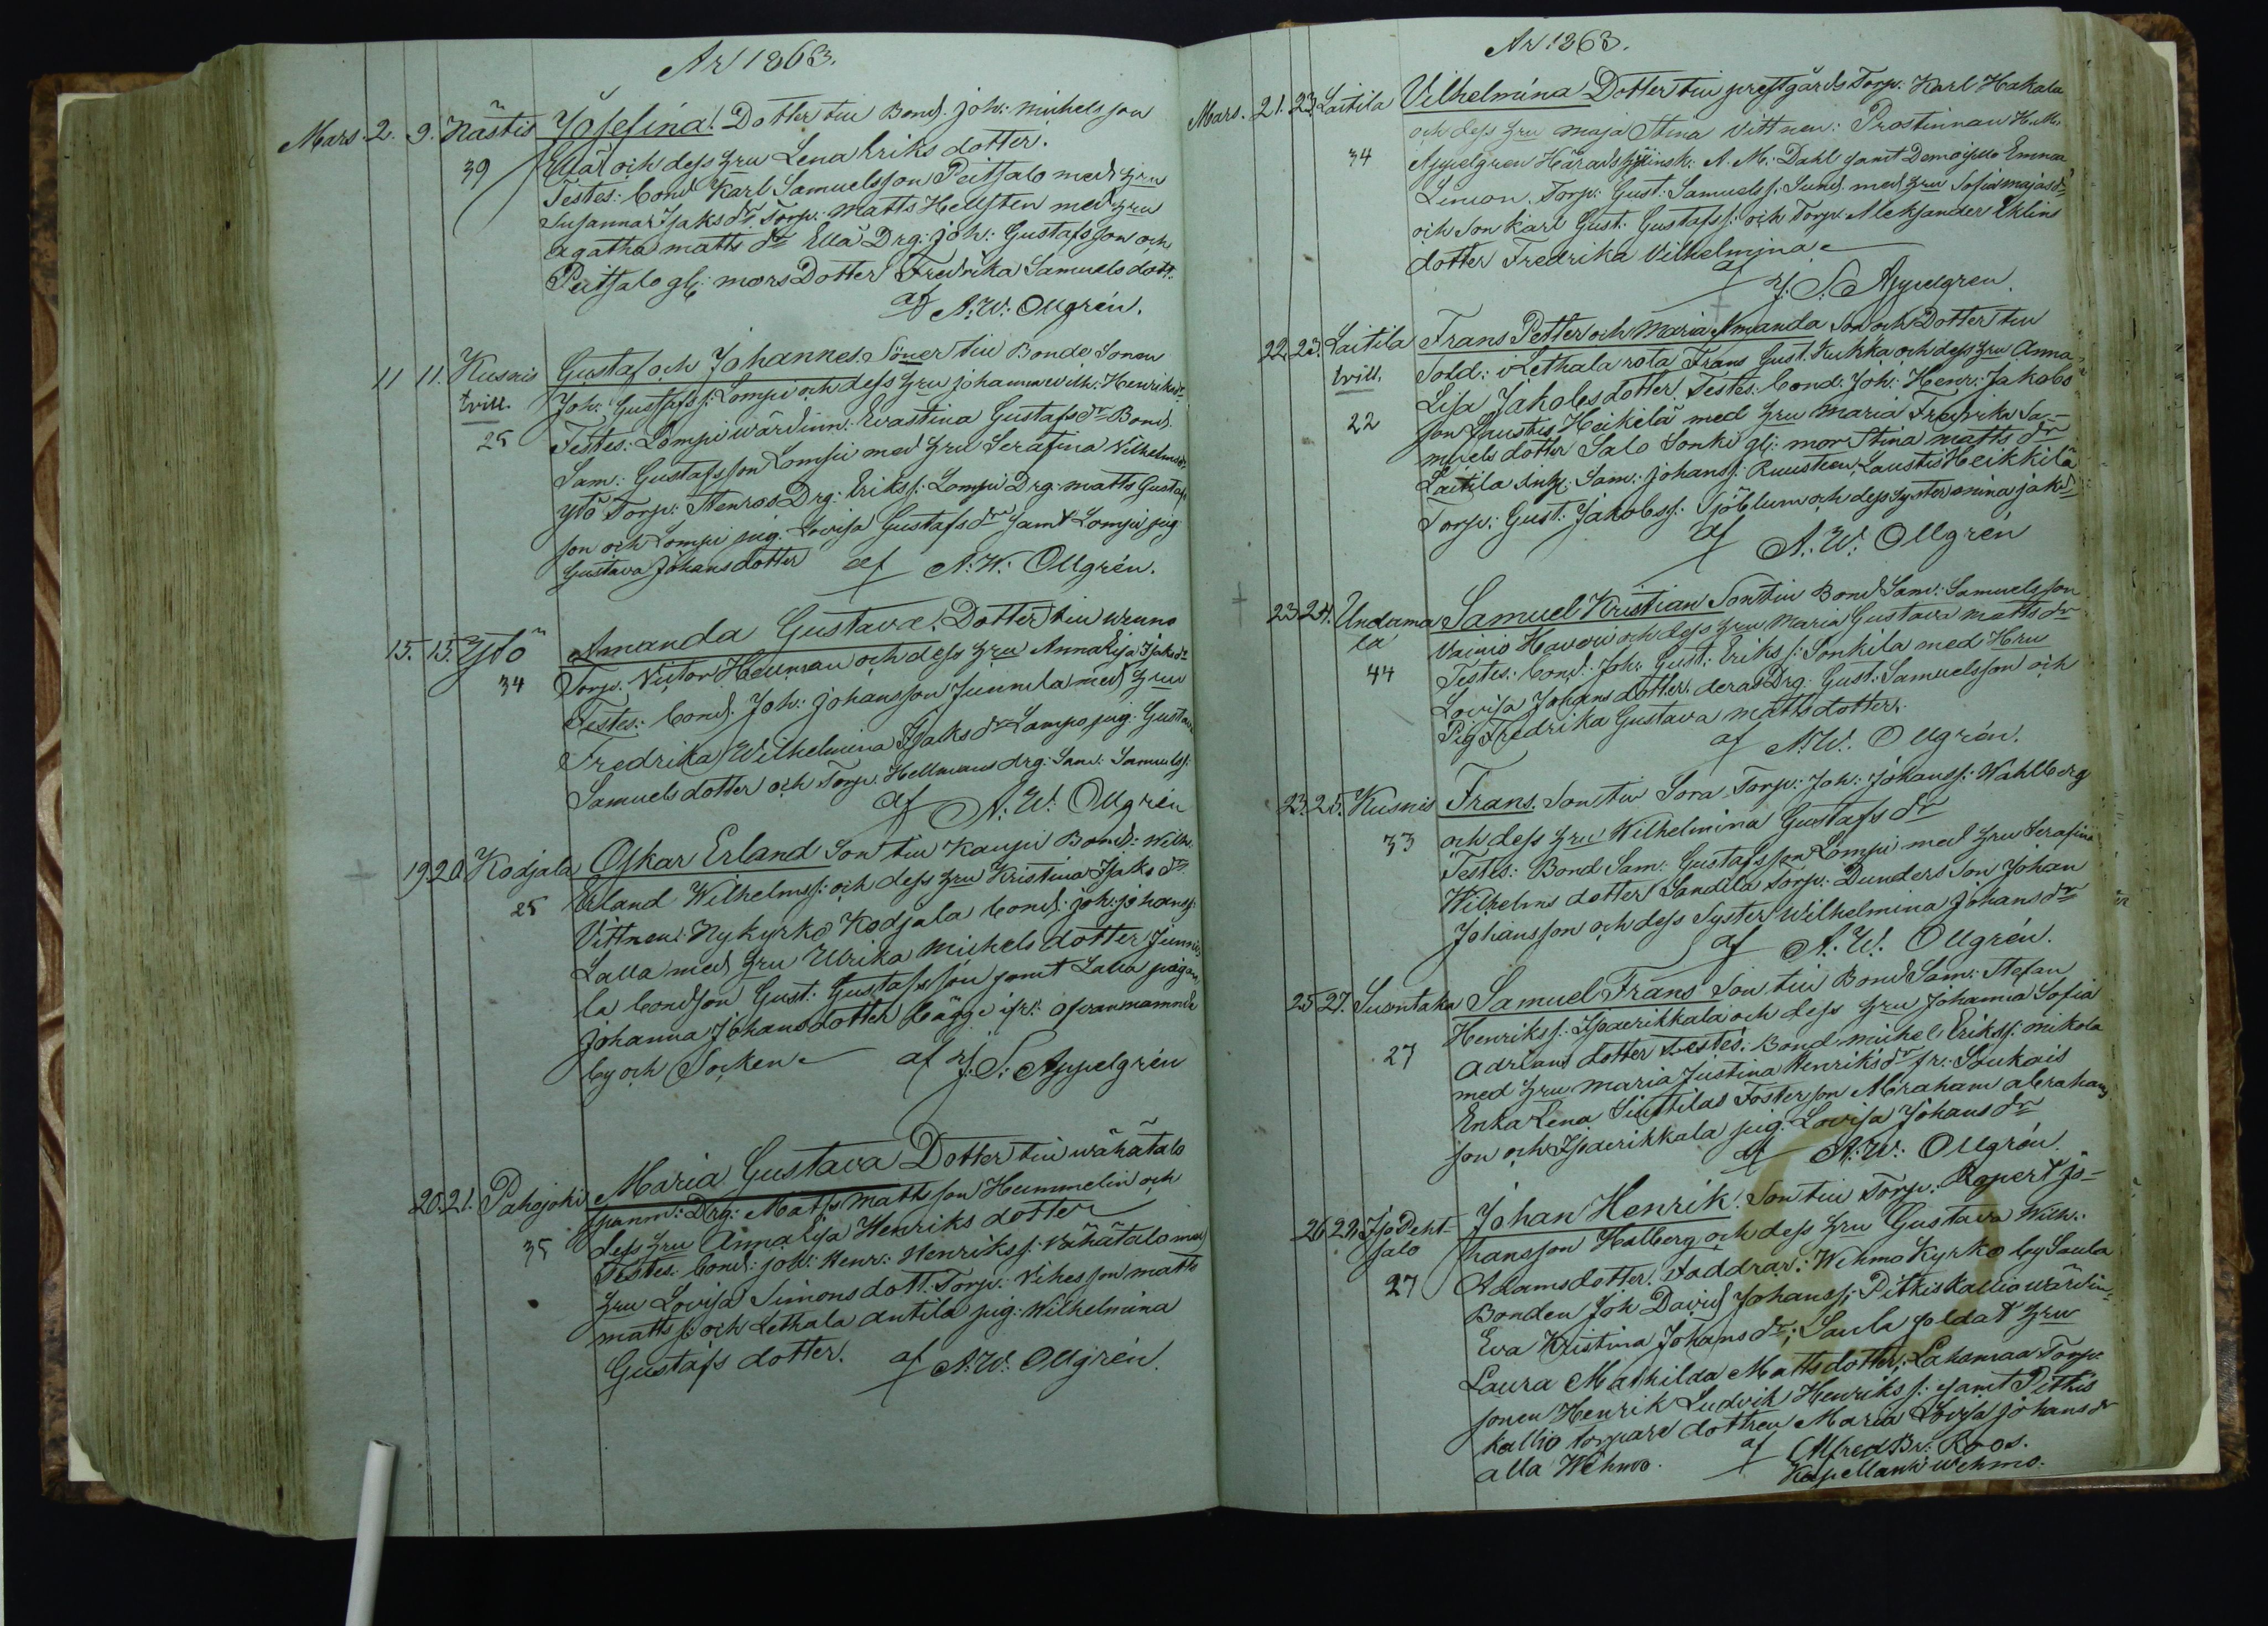 År 1863.
Mars 2. 9. Nästis Josefina! Dotter till Bond. Joh: Michelsson
39 Ellä och dess hru Lena Eriks dotter.
Testes: bond Karl Samuelsson Peitsalo med hru
Susanna Isaks dr Torp: Matts Hellsten med hru
Agatha Matts dr Ellä Drg: Joh: Gustafsson och
Peitsalo gl: mors Dotter Fredrika Samuels dott.
af A. W. Ollgrén.
11 11. Kusnis Gustaf och Johannes Söner till Bonde Sonen
tvill. Joh: Gustafss: Lompi och dess hru Johanna Wilh: Henriksdr
25 Testes: Lompi wärdinn: Evastina Gustafs dr Bond.
Sam: Gustafsson Lompi med hru Serafina Vilhelmsdr
Ytö Torp: Stenros Drg: Erikss: Lompi Drg: Matts Gustafs
son och Lompi pig. Lovisa Gustafs dr samt Lompi pig
Gustava Johansdotter af A. W. Ollgrén.
15. 15. Ytö Amanda Gustava! Dotter till
34 Torp. Victor Hellman och dess hru Anna Lisa Isaks dr
Testes: bond. Joh: Johansson Junnila med hru
Fredrika Wilhelmina Isaks dr Lampo pig: Gustava
Samuels dotter och Torp. Hellmans drg: Sam: Samuelss:
af A. W. Ollgrén
19. 20. Kodjala Oskar Erland Son till Kaupi Bond: Wilh:
25 Erland Wilhelmss: och dess hru Kristina Isaks dr
Vittnen: Nykyrko Kodjala bond: Joh: Johanss:
Lalla med hru Ulrika Michels dotter Junni
la bondson Gust: Gustafsson samt Lalla pigan
Johanna Johansdotter bägge ifr: ofvannämnde
by och Socken af J. S. Appelgrén
20. 21. Pahojoki Maria Gustava Dotter till wähätalo
35 spanm: Drg: Matts Mattsson Hummelin och
dess hru Anna Lisa Henriks dotter
Testes: bond: Joh: Henr: Henrikss: Vähätalo med
hru Lovisa Simons dott. Torp: Vihes son Matts
Mattss: och Lethala Antila pig: Wilhelmina
Gustafs dotter. af A. W. Ollgrén.
År 1863.
Mars. 21. 23. Laitila Vilhelmina Dotter till prestgårds Torp: Karl Hakala
och dess hru Maja Stina Vittnen: Prostinnan H. M.
34 Appelgren Härads A. M. Dahl samt Demoiselle Emma
Torp: Gust: Samuelss: Sund. med hru Sofia Majas dr
och Son Karl Gust: Gustafss: och Torp: Aleksander Eklins
dotter Fredrika Vilhelmina
af J. S. Appelgren.
22. 23. Laitila Frans Petter och Maria Amanda Son och Dotter till
tvill. Sold: i Lethala rota Frans Gust. Kuhka och dess hru Anna
22 Lisa Jakobsdotter. Testes: bond. Joh: Henr: Jakobs
son Laustis Heikilä med hru Maria Fredrika Sa-
muels dotter Salo Sonki gl: mor Stina Matts dr
Laitila Sam: Johanss: Laustis Heikkilä
Torp: Gust: Jakobss: Sjöblum och dess Syster Mina Jak dr
af A. W. Ollgrén
23 24. Undama Samuel Kristian Son till Bond Sam: Samuelsson
la Vainio Haveri och dess hru Maria Gustava Matts dr
44 Testes: bond. Joh: Gust: Erikss: Sonkila med Hru
Lovisa Johans dotter. deras Drg: Gust: Samuelsson och
Pig Fredrika Gustava Matts dotter.
af A. W. Ollgrén.
23. 25. Kusnis Frans. Son till Sora Torp: Joh: Johanss: Wahlberg
33 och dess hru Wilhelmina Gustafs dr
Testes: Bond Sam: Gustafsson Lompi med hru Serafina
Wilhelms dotter Sandila Torp: Dunders Son Johan
Johansson och dess Syster Wilhelmina Johans dr
af A. W. Ollgrén.
25 27. Suontaka Samuel Frans Son till Bond Sam: Stefan
Henrikss: Isoaerikkala och dess hru Johanna Sofia
27 Adrians dotter Testes: Bond Michel Erikss: Mikola
med hru Maria Justina Henriks dr fr: Soukais
Enka Lena Siutilas Foster son Abraham Abrahams
son och Isoaerikkala pig. Lovisa Johans dr
af A. W. Ollgrén.
26 28. Iso Deht- Johan Henrik! Son till Torp. Robert Jo-
salo hansson Halberg och dess hru Gustava Wilh:
27 Adamsdotter. Faddrar: Wehmo Kyrko by Saula
Bonden Joh David Johanss: Pitkiskallio wärdin:
Eva Kristina Johans dr; Saula soldat hru
Laura Mathilda Mattsdotter; Lahamaa Torp:
sonen Henrik Ludvik Henrikss: samt Pitkis
kallio torpare dottren Maria Lovisa Johans dr
alla Wehmo. af Alfred Br: Roos.
Kapellan i Wehmo.